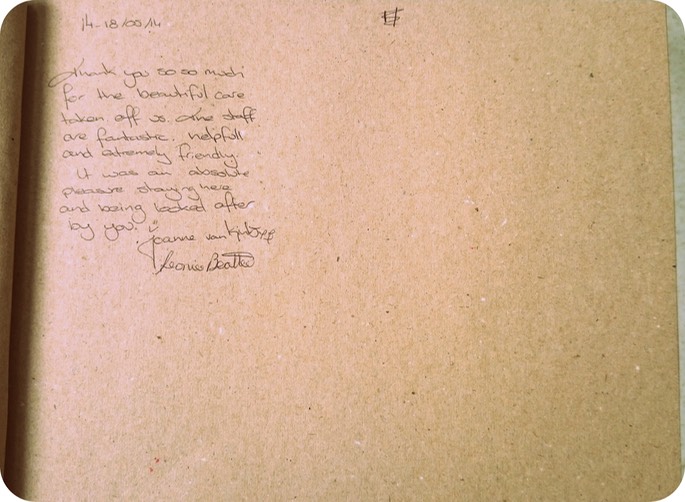 14-18/09/14
Thank you so so much
for the beautiful care
taken off us. The staff
are fantastic, helpfull
and extremely friendly.
It was an absolute
pleasure staying here
and being looked after
by you.
Joanne van
Leonie Beattie